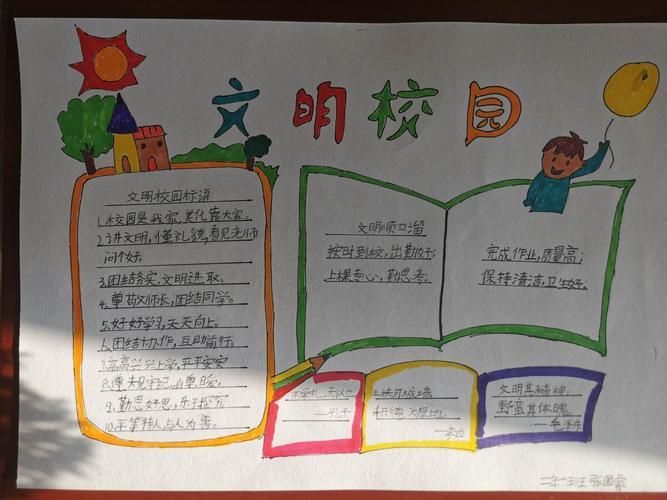 文明校园
文明校园标语
1.校园是我家,美化靠大家。
2.讲文明,懂礼貌,看见老师
问个好。
3.团结务实,文明进取。
4.尊敬师长,团结同学。
5.好好学习,天天向上。
6.团结协作,互助前行。
7.高高兴兴上学,平平安安
8.遵规守纪,自尊自爱。
9.勤思好思,乐于探究
10.平等待人与人为善。
文明顺口溜
按时到校,出勤好;
上课专心,勤思考,
完成作业,质量高;
保持清洁,卫生好;
不学礼,无以立
—孔子
土扶可城墙
积德为厚地。
—李白
文明其精神,
野蛮其体魄
—毛泽东
二年一班